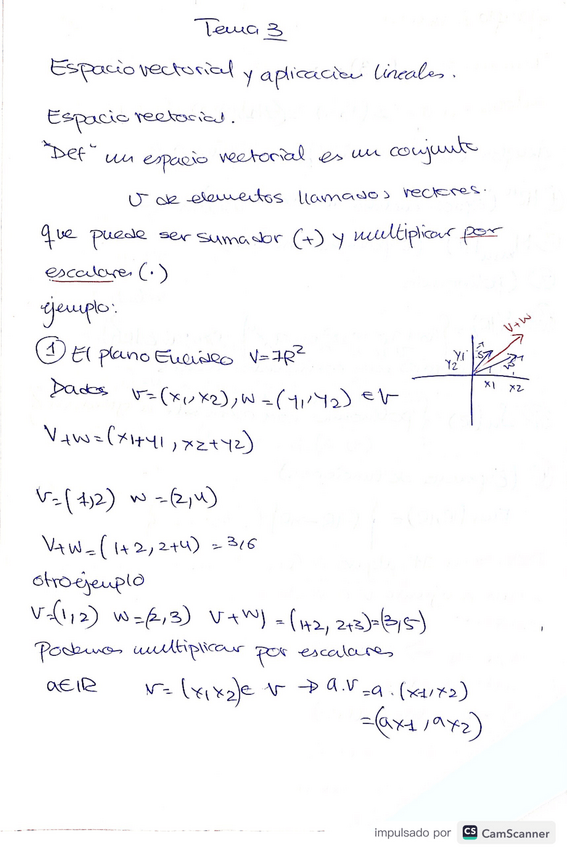 Tema 3
Espacio vectorial y aplicacion lineales.
Espacio vectorial.
"Def" un espacio vectorial es un conjunto
V de elementos llamados vectores.
que puede ser sumador (+) y multiplicar por
escalares (·)
ejemplo:
① El plano Euclideo V=ℝ²
Dados v=(x1,x2), w=(y1,y2) ∈ V
V+W=(x1+y1, x2+y2)
V+W
Y1
Y2
X1 X2
V=(1,2) W=(2,4)
V+W=(1+2, 2+4) = 3,6
otro ejemplo
V=(1,2) W=(2,3) V+W) = (1+2, 2+3)=(3,5)
Podemos multiplicar por escalares
a∈ℝ v=(x1x2)∈ V → a.v=a.(x1,x2)
=(ax1, ax2)
impulsado por CS CamScanner